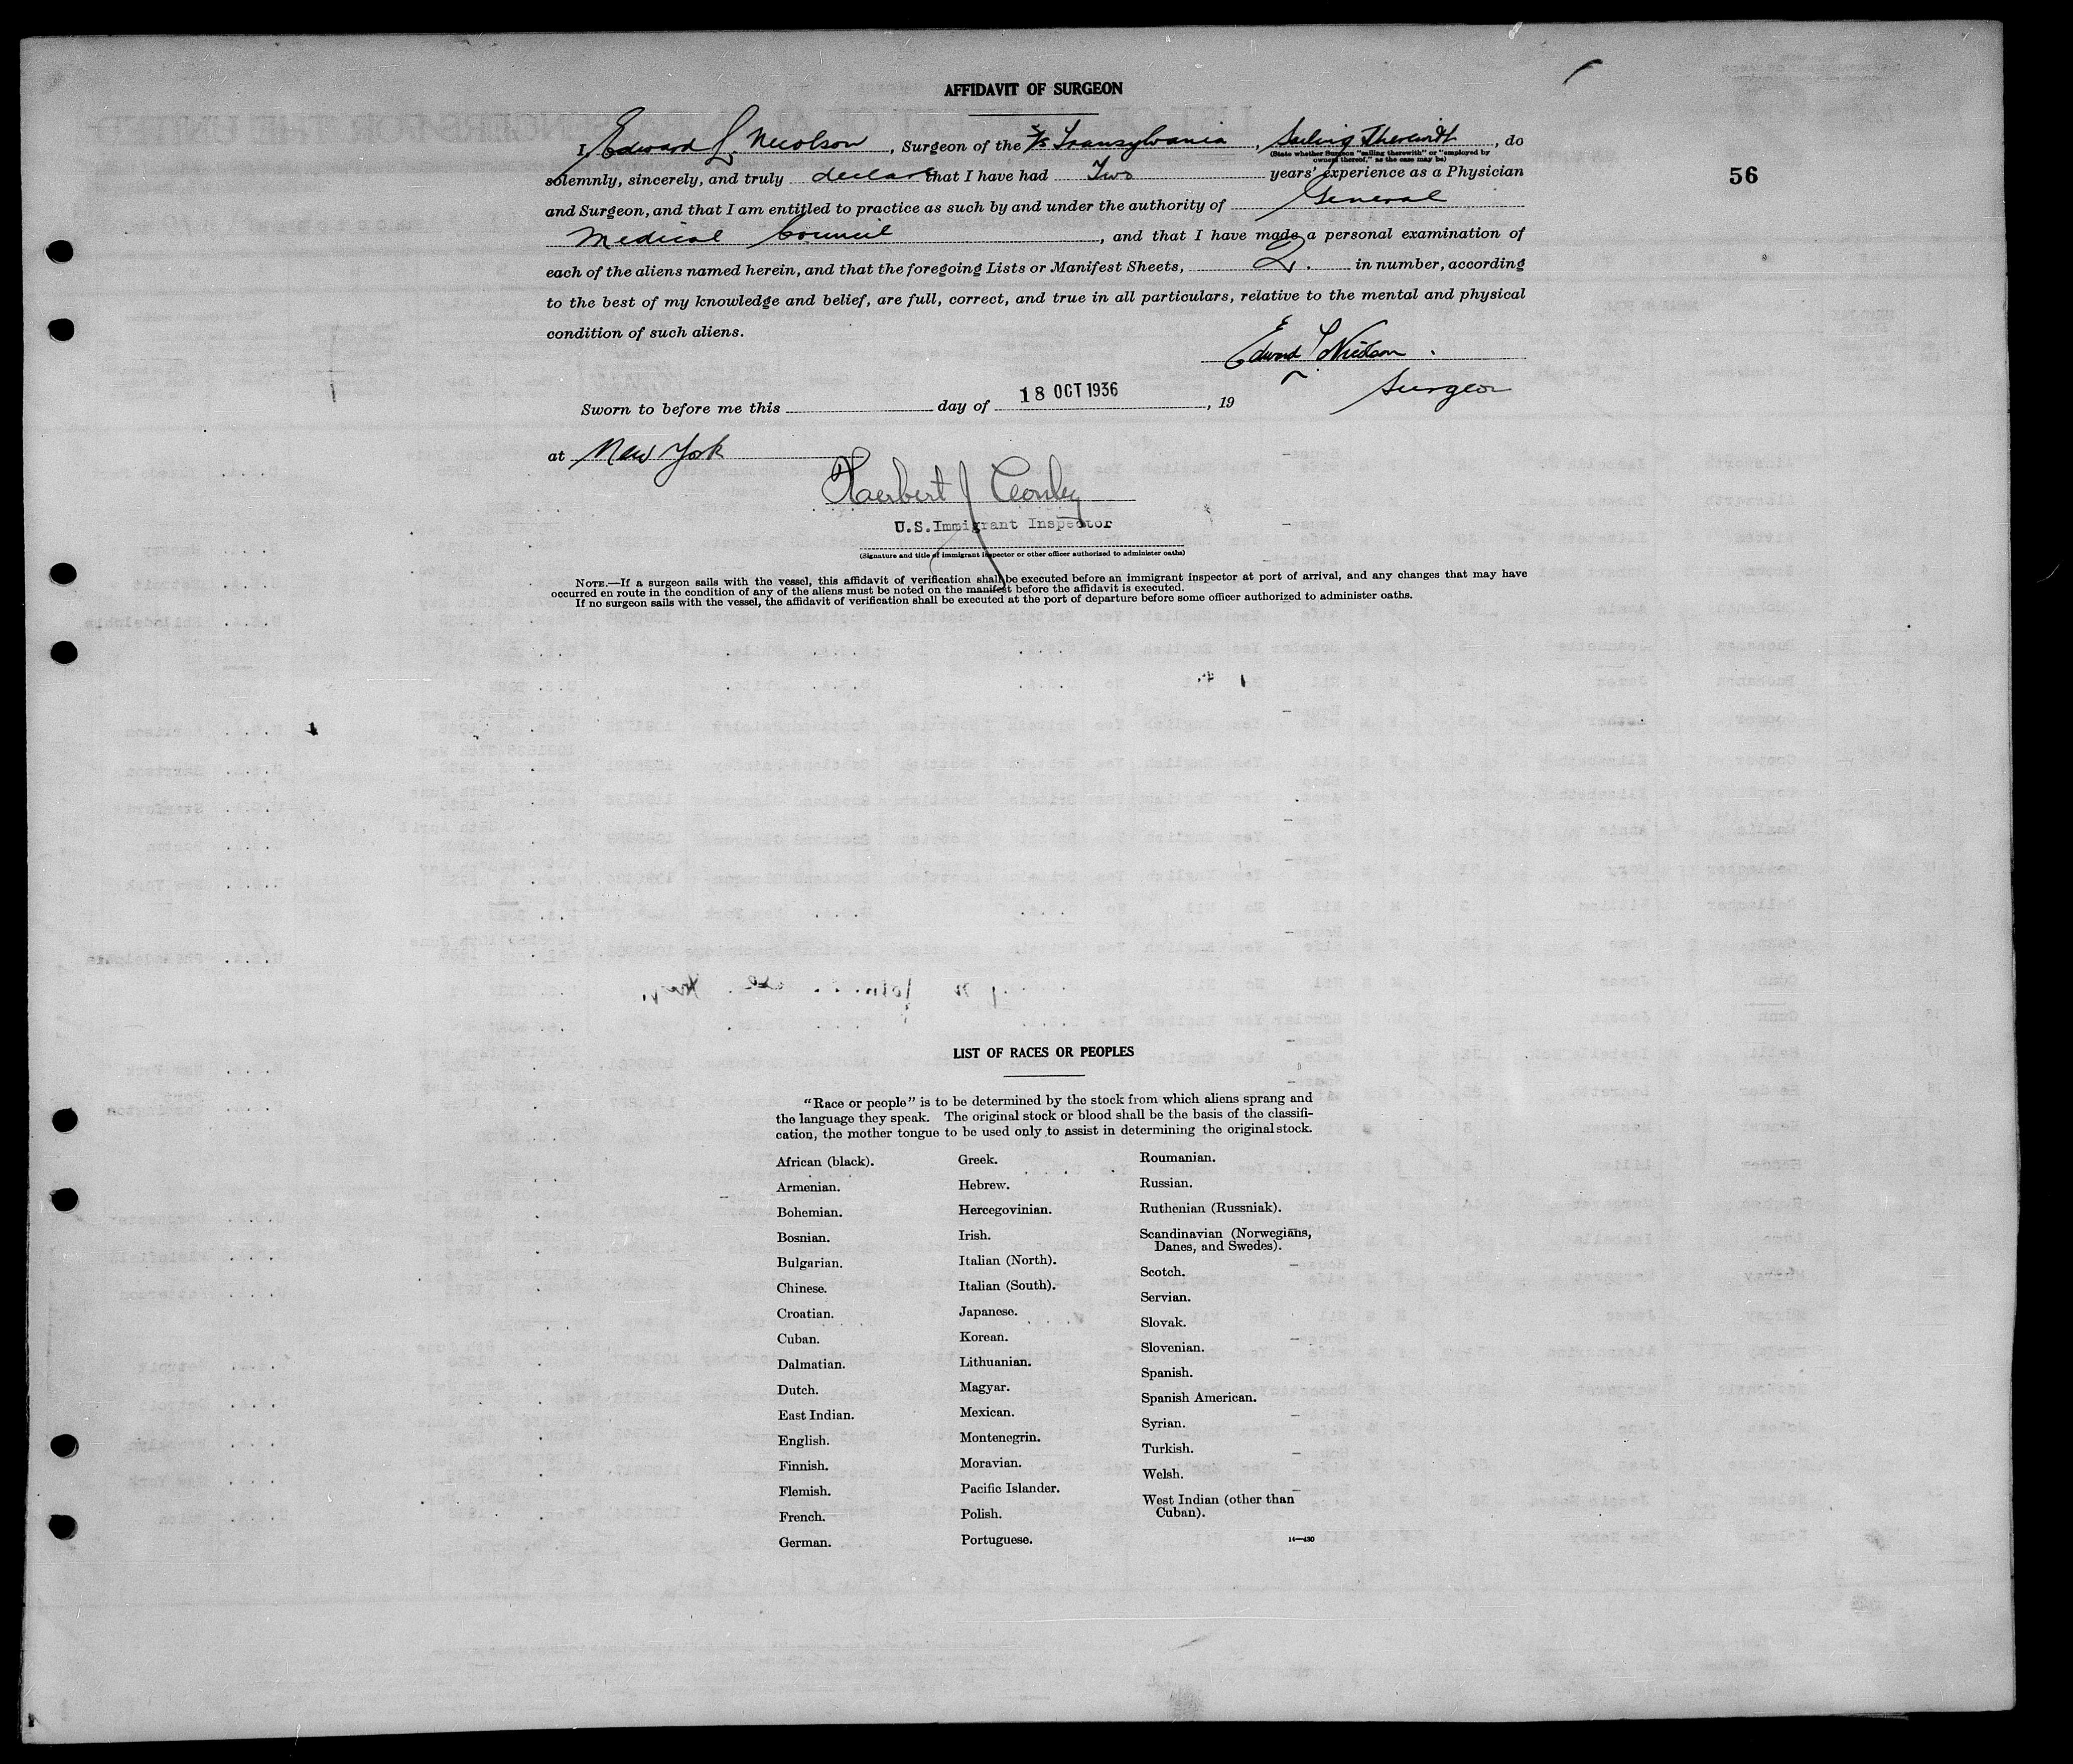 AFFIDAVIT OF SURGEON
I, Edward L. Nicolson, Surgeon of the S/S Transylvania, Sailing Therewith, do
(State whether Surgeon "sailing therewith" or "employed by
owners thereof," as the case may be)
solemnly, sincerely, and truly declare that I have had Two years' experience as a Physician
56
and Surgeon, and that I am entitled to practice as such by and under the authority of General
Medical Council, and that I have made a personal examination of
each of the aliens named herein, and that the foregoing Lists or Manifest Sheets, 2. in number, according
to the best of my knowledge and belief, are full, correct, and true in all particulars, relative to the mental and physical
condition of such aliens.
Edward L Nicolson.
Surgeon
Sworn to before me this day of 18 OCT 1936, 19
at New York
U.S. Immigrant Inspector
(Signature and title of immigrant inspector or other officer authorized to administer oaths)
NOTE.—If a surgeon sails with the vessel, this affidavit of verification shall be executed before an immigrant inspector at port of arrival, and any changes that may have
occurred en route in the condition of any of the aliens must be noted on the manifest before the affidavit is executed.
If no surgeon sails with the vessel, the affidavit of verification shall be executed at the port of departure before some officer authorized to administer oaths.
LIST OF RACES OR PEOPLES
"Race or people" is to be determined by the stock from which aliens sprang and
the language they speak. The original stock or blood shall be the basis of the classifi-
cation, the mother tongue to be used only to assist in determining the original stock.
African (black).
Armenian.
Bohemian.
Bosnian.
Bulgarian.
Chinese.
Croatian.
Cuban.
Dalmatian.
Dutch.
East Indian.
English.
Finnish.
Flemish.
French.
German.
Greek.
Hebrew.
Hercegovinian.
Irish.
Italian (North).
Italian (South).
Japanese.
Korean.
Lithuanian.
Magyar.
Mexican.
Montenegrin.
Moravian.
Pacific Islander.
Polish.
Portuguese.
Roumanian.
Russian.
Ruthenian (Russniak).
Scandinavian (Norwegians,
Danes, and Swedes).
Scotch.
Servian.
Slovak.
Slovenian.
Spanish.
Spanish American.
Syrian.
Turkish.
Welsh.
West Indian (other than
Cuban).
14—430